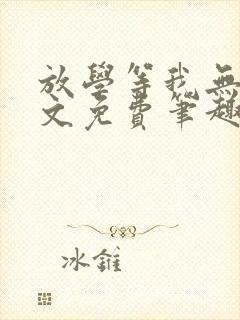 放學等我無
文免費筆趣
冰錐